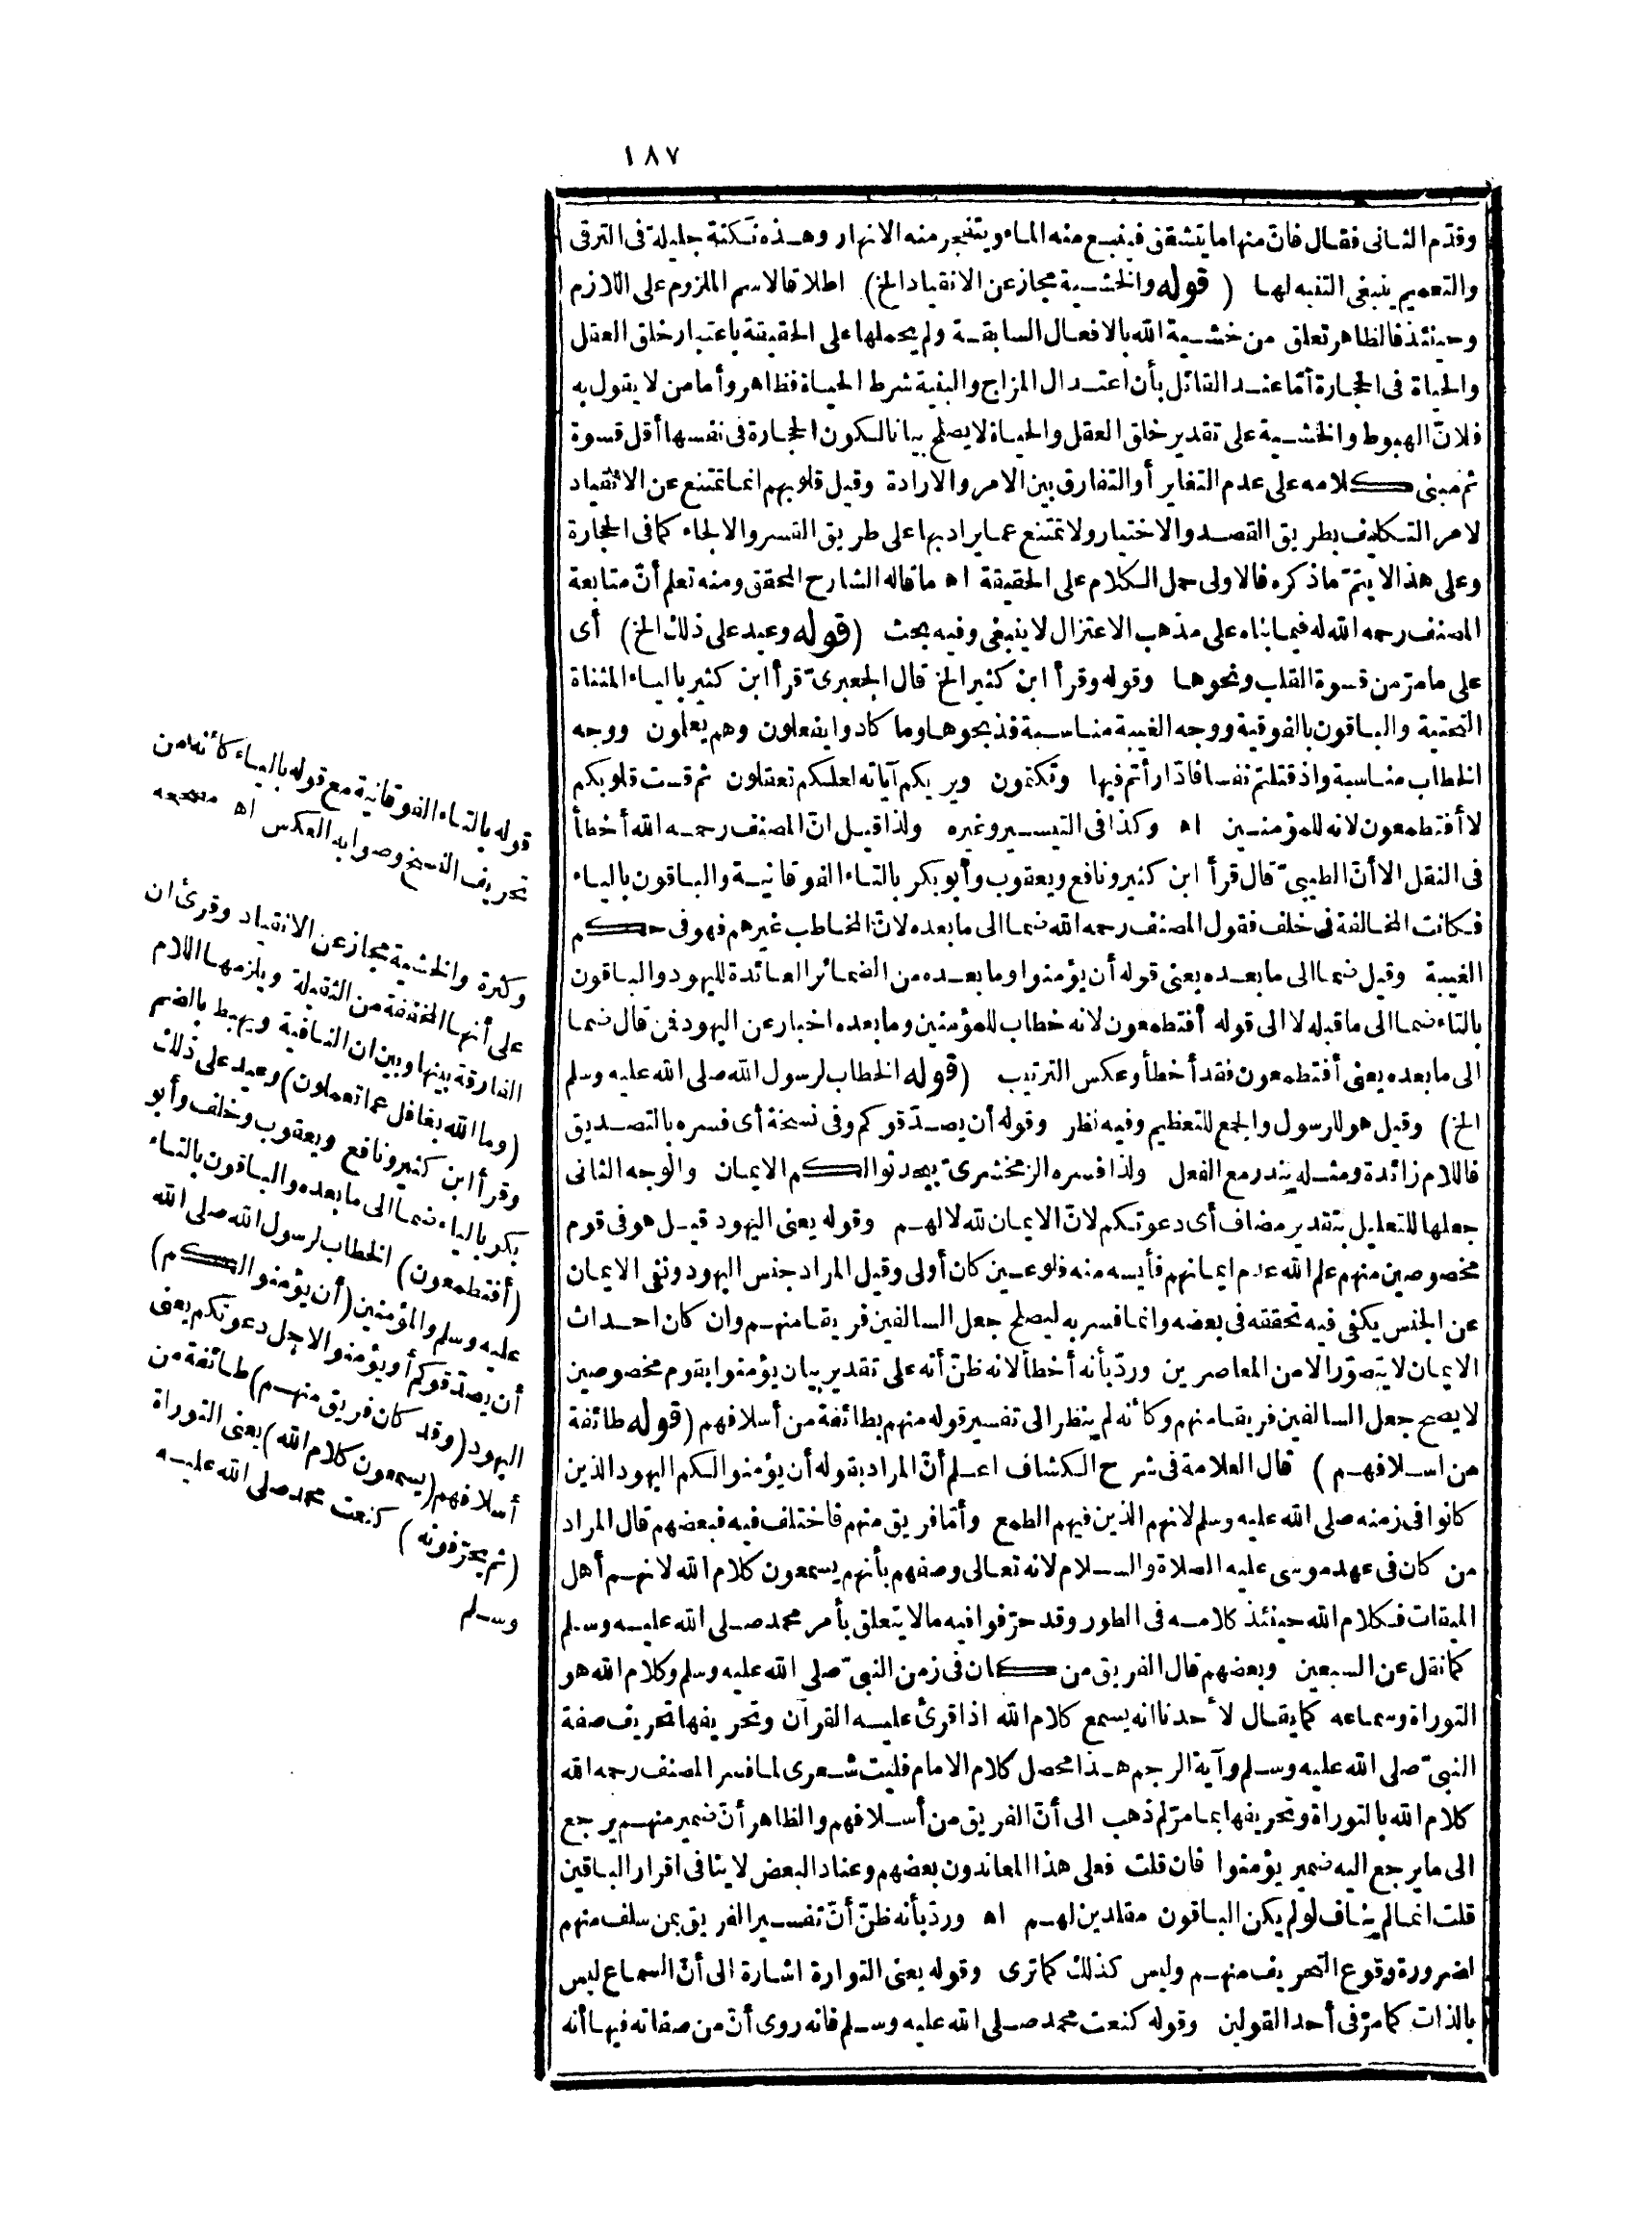 ١٨٧
وقدّم الثانى فقال فانّ منها ما يتشقق فينبع منه الماء ويتفجر منه الانهار وهذه نكتة جليلة فى الترقى
والتعميم ينبغى التنبه لها (قوله والخشية مجاز عن الانقياد الخ) اطلاقا لاسم الملزوم على اللازم
وحينئذ فالظاهر تعلق من خشية الله بالافعال السابقة ولم يحملها على الحقيقة باعتبار خلق العقل
والحياة فى الحجارة أمّا عند القائل بأن اعتدال المزاج والبنية شرط الحياة فظاهر وأما من لا يقول به
فلانّ الهبوط والخشية على تقدير خلق العقل والحياة لا يصلح بيانا لكون الحجارة فى نفسها أقل قسوة
ثم مبنى كلامه على عدم التغاير أو التفارق بين الامر والارادة وقيل قلوبهم انما تمتنع عن الانقياد
لامر التكليف بطريق القصد والاختيار ولا تمتنع عما يراد بها على طريق القسر والالجاء كما فى الحجارة
وعلى هذا لا يتمّ ما ذكره فالاولى حمل الكلام على الحقيقة اه ما قاله الشارح المحقق ومنه تعلم أنّ متابعة
المصنف رحمه الله له فيما بناه على مذهب الاعتزال لا ينبغى وفيه بحث (قوله وعيد على ذلك الخ) أى
على ما مرّ من قسوة القلب ونحوها وقوله وقرأ ابن كثير الخ قال الجعبرىّ قرأ ابن كثير بالياء المثناة
التحتية والباقون بالفوقية ووجه الغيبة مناسبة فذبحوها وما كادوا يفعلون وهم يعلمون ووجه
الخطاب مناسبة واذ قتلتم نفسا فادّارأتم فيها وتكتمون ويريكم آياته لعلكم تعقلون ثم قست قلوبكم
لا أفتطمعون لانه للمؤمنين اه وكذا فى التيسير وغيره ولذا قيل انّ المصنف رحمه الله أخطأ
فى النقل الا أنّ الطيبىّ قال قرأ ابن كثير ونافع ويعقوب وأبو بكر بالتاء الفوقانية والباقون بالياء
فكانت المخالفة فى خلف فقول المصنف رحمه الله ضما الى ما بعده لانّ المخاطب غيرهم فهو فى حكم
الغيبة وقيل ضما الى ما بعده يعنى قوله أن يؤمنوا وما بعده من الضمائر العائدة لليهود والباقون
بالتاء ضما الى ما قبله لا الى قوله أفتطمعون لانه خطاب للمؤمنين وما بعده اخبار عن اليهود فمن قال ضما
الى ما بعده يعنى أفتطمعون فقد أخطأ وعكس الترتيب (قوله الخطاب لرسول الله صلى الله عليه وسلم
الخ) وقيل هو للرسول والجمع للتعظيم وفيه نظر وقوله أن يصدّقوكم وفى نسخة أى فسره بالتصديق
فاللام زائدة ومثله يندر مع الفعل ولذا فسره الزمخشرىّ بيحدثوا لكم الايمان والوجه الثانى
جعلها للتعليل بتقدير مضاف أى دعوتكم لانّ الايمان لله لا لهم وقوله يعنى اليهود قيل هو فى قوم
مخصوصين منهم علم الله عدم ايمانهم فأيسه منه فلو عين كان أولى وقيل المراد جنس اليهود ونفى الايمان
عن الجنس يكفى فيه تحققه فى بعضه وانما فسر به ليصلح جعل السالفين فريقا منهم وان كان احداث
الايمان لا يتصوّر الا من المعاصرين وردّ بأنه أخطأ لانه ظنّ أنه على تقدير بيان يؤمنوا بقوم مخصوصين
لا يصح جعل السالفين فريقا منهم وكأنه لم ينظر الى تفسير قوله منهم بطائفة من أسلافهم (قوله طائفة
من اسلافهم) قال العلامة فى شرح الكشاف اعلم أنّ المراد بقوله أن يؤمنوا لكم اليهود الذين
كانوا فى زمنه صلى الله عليه وسلم لانهم الذين فيهم الطمع وأمّا فريق منهم فاختلف فيه فبعضهم قال المراد
من كان فى عهد موسى عليه الصلاة والسلام لانه تعالى وصفهم بأنهم يسمعون كلام الله لانهم أهل
الميقات فكلام الله حينئذ كلامه فى الطور وقد حرّفوا فيه مالا يتعلق بأمر محمد صلى الله عليه وسلم
كما نقل عن السبعين وبعضهم قال الفريق من كان فى زمن النبىّ صلى الله عليه وسلم وكلام الله هو
التوراة وسماعه كما يقال لأحدنا انه يسمع كلام الله اذا قرئ عليه القرآن وتحريفها تحريف صفة
النبىّ صلى الله عليه وسلم وآية الرجم هذا محصل كلام الامام فليت شعرى لما فسر المصنف رحمه الله
كلام الله بالتوراة وتحريفها بما مرّ لم ذهب الى أنّ الفريق من أسلافهم والظاهر أنّ ضمير منهم يرجع
الى ما يرجع اليه ضمير يؤمنوا فان قلت فعلى هذا المعاندون بعضهم وعناد البعض لا ينافى اقرار الباقين
قلت انما لم يناف لو لم يكن الباقون مقلدين لهم اه وردّ بأنه ظنّ أنّ تفسير الفريق بمن سلف منهم
لضرورة وقوع التحريف منهم وليس كذلك كما ترى وقوله يعنى التوارة اشارة الى أنّ السماع ليس
بالذات كما مرّ فى أحد القولين وقوله كنعت محمد صلى الله عليه وسلم فانه روى أنّ من صفاته فيها أنه
قوله بالتاء الفوقانية مع قوله بالياء كأنه من
تحريف النسخ وصوابه العكس اه مصححه
وكثرة والخشية مجاز عن الانقياد وقرئ ان
على أنها المخففة من الثقيلة ويلزمها اللام
الفارقة بينها وبين ان النافية ويهبط بالضم
(وما الله بغافل عما تعملون) وعيد على ذلك
وقرأ ابن كثير ونافع ويعقوب وخلف وأبو
بكر بالياء ضما الى ما بعده والباقون بالتاء
(أفتطمعون) الخطاب لرسول الله صلى الله
عليه وسلم والمؤمنين (أن يؤمنوا لكم)
أن يصدّقوكم أو يؤمنوا لاجل دعوتكم يعنى
اليهود (وقد كان فريق منهم) طائفة من
أسلافهم (يسمعون كلام الله) يعنى التوراة
(ثم يحرّفونه) كنعت محمد صلى الله عليه
وسلم